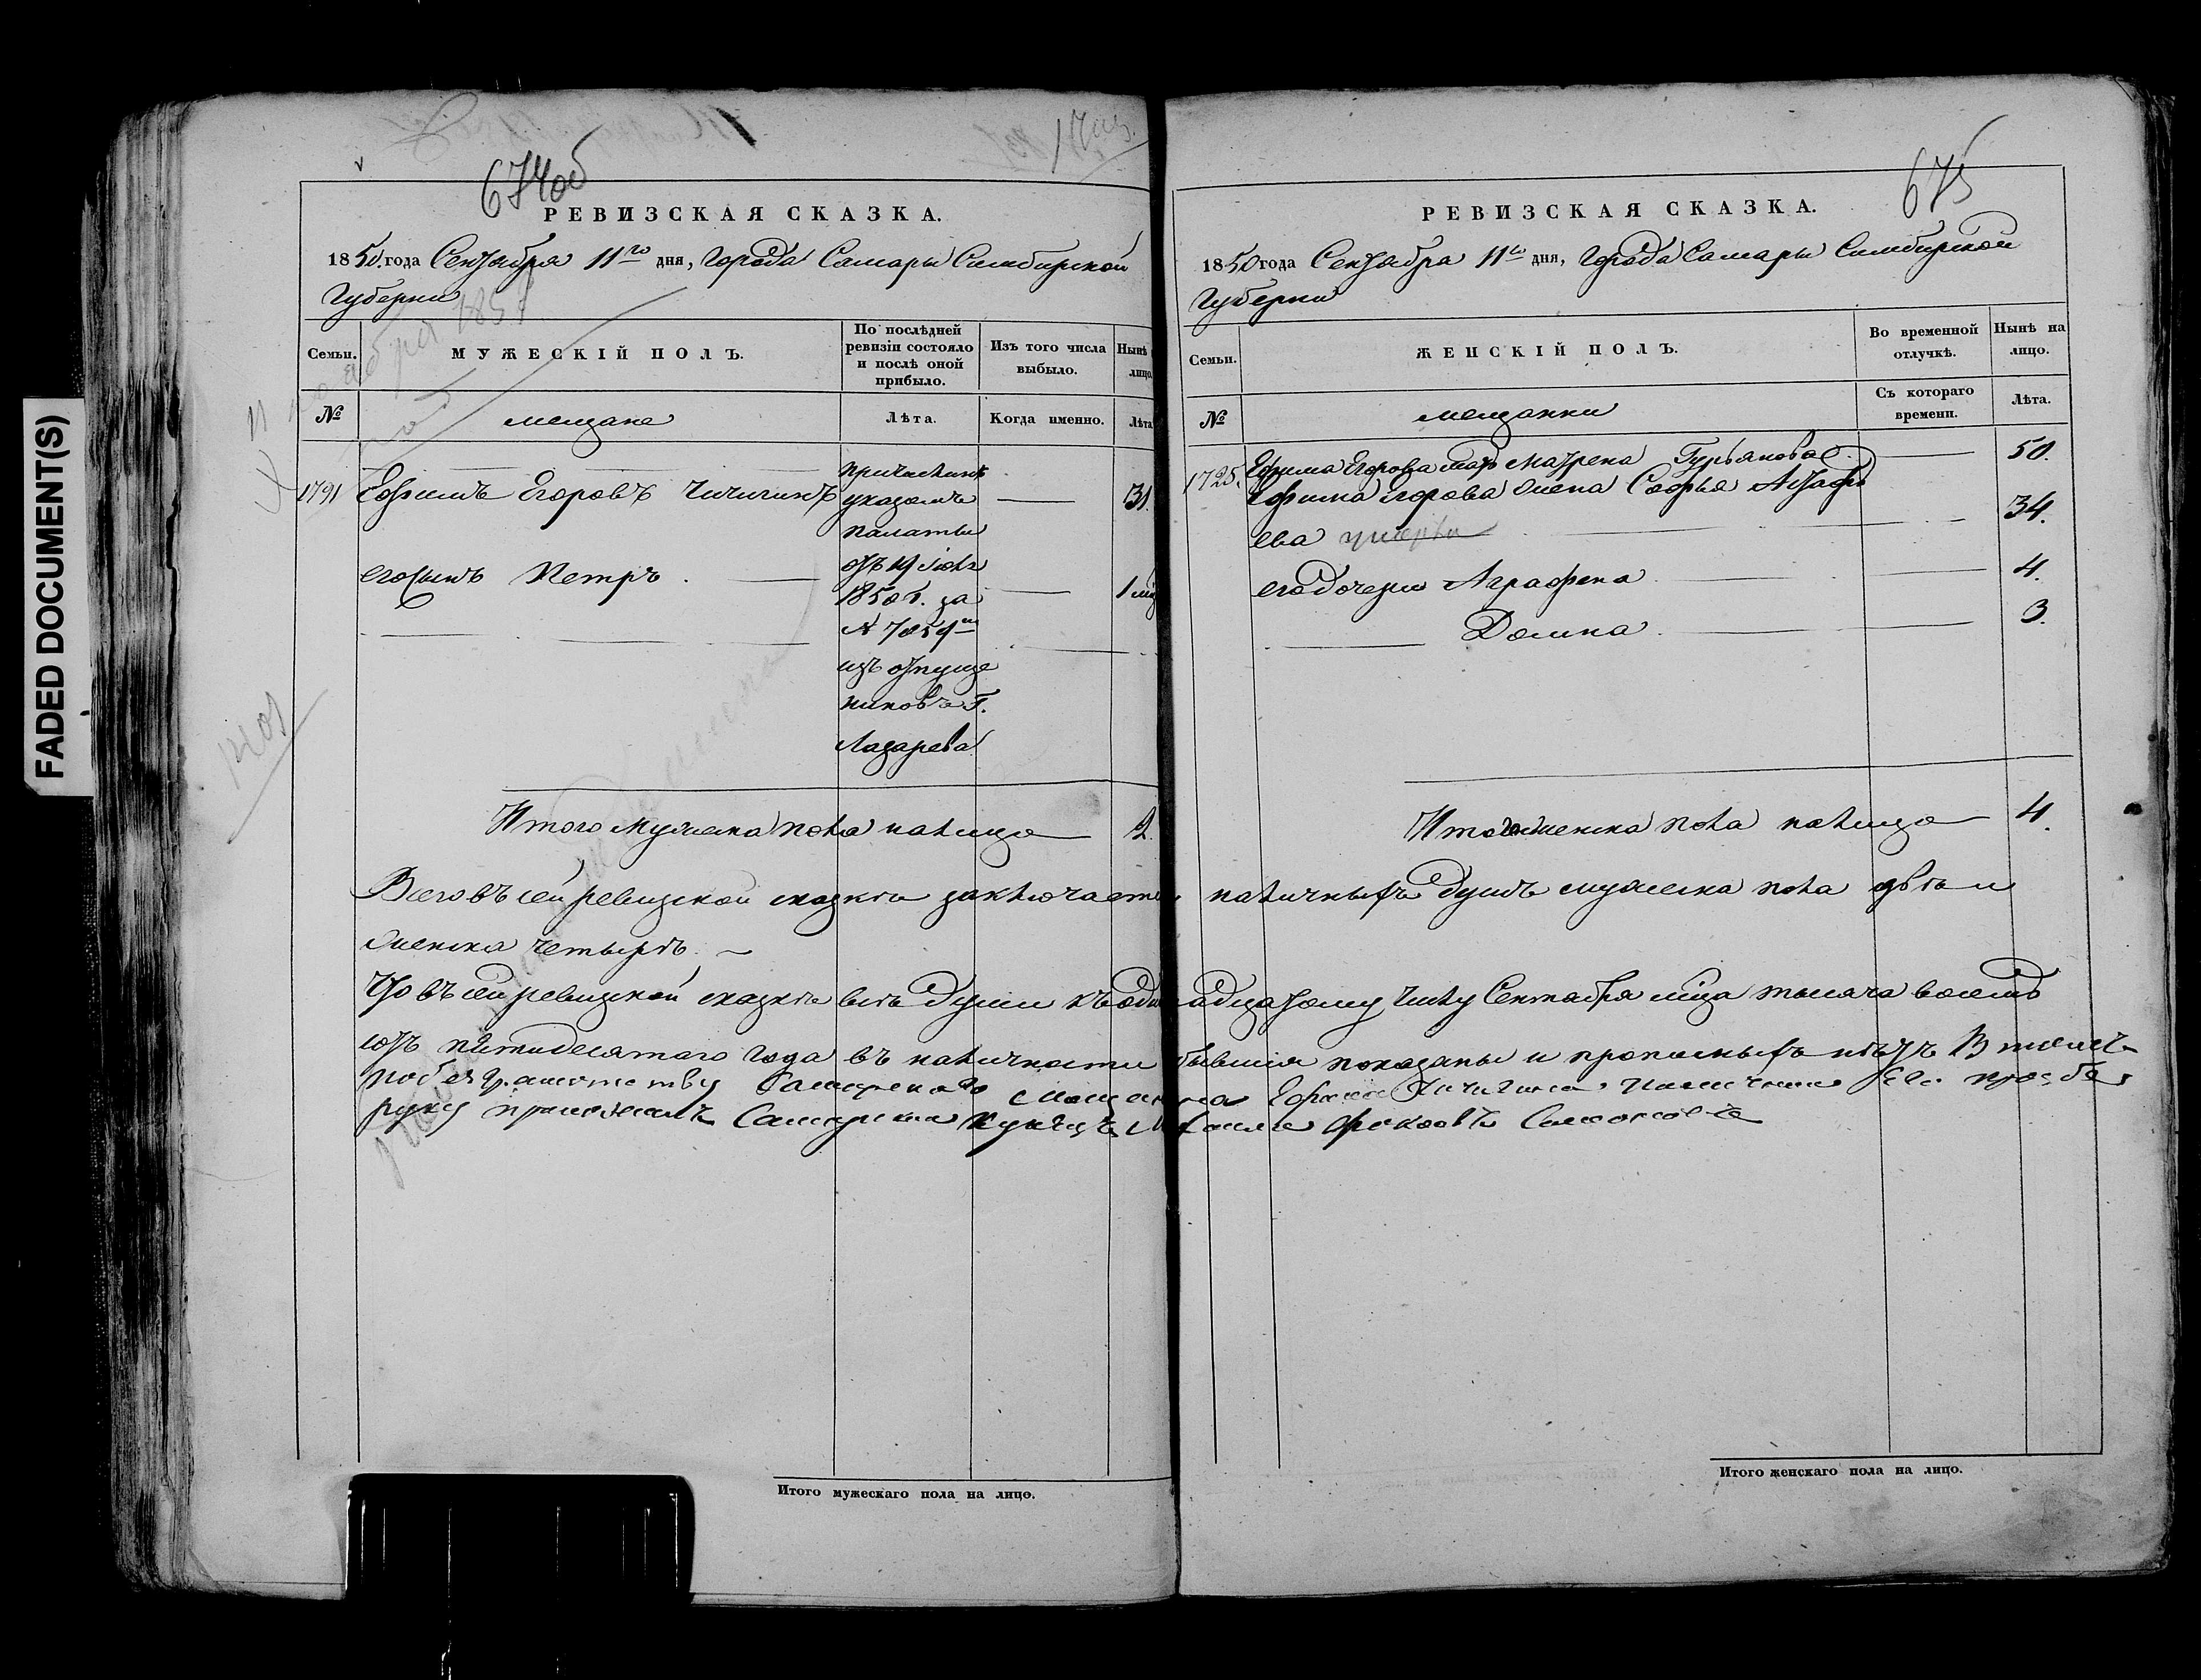 FADED DOCUMENT(S)
674об
РЕВИЗСКАЯ СКАЗКА.
1850. года Сентября 11го дня, Города Самары Симбирской
Губерни
Семьи.
МУЖЕСКІЙ ПОЛЪ.
По послѣдней ревизіи состояло и послѣ оной прибыло.
Изъ того числа выбыло.
Нынѣ лицо.
№
мещане
Лѣта.
Когда именно.
Лѣта
1791 Ефимъ Егоровъ Чичигинъ
31.
причисленъ
указомъ
палаты
отъ 19 Іюля
1850 г. за
№ 7054м
изъ отпуще
никовъ Г.
Лазарева
его сынъ Петръ.
1401
Итого мужеска пола налицо 2.
675
РЕВИЗСКАЯ СКАЗКА.
1850 года Сентября 11го дня, Города Самары Симбирской
Губерни
Семьи.
ЖЕНСКІЙ ПОЛЪ.
Во временной отлучкѣ.
Нынѣ на лицо.
№
мещанки
Съ котораго времени.
Лѣта.
1725. Ефима Егорова мать Матрена Гурьянова 50.
Ефима Егорова жена Софья
ева умерла 34.
его дочери Аграфена 4.
Домна. 3.
Итого женска пола налицо 4.
Всего въ сей ревизской сказкѣ заключается наличныхъ душъ мужеска пола двѣ и
женска четырѣ.
Что въ сей ревизской сказкѣ всѣ души къ одинадцатому числу Сентября мца тысяча восемь
сотъ пятидесятого года въ наличности бывшия показаны и прописныхъ нѣтъ В томъ
по безграмотству Самарскаго мещанина Ефима Чичигина его прозбе
руку приложилъ Самарски купецъ
Итого мужескаго пола на лицо.
Итого женскаго пола на лицо.